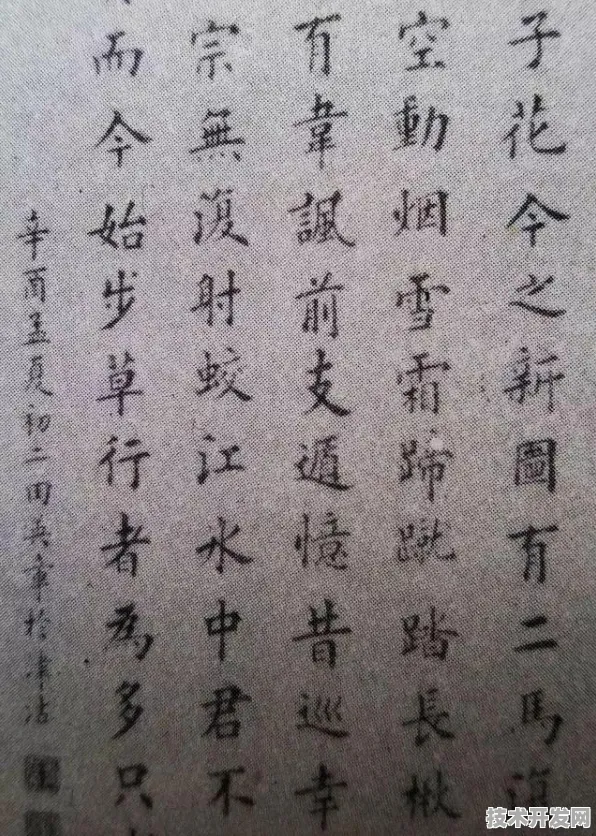 子花今之新圖有二馬復
空動烟雪霜蹄蹴踏長楸
有韋諷前支遁憶昔巡幸
宗無復射蛟江水中君不
而今始步草行者為多只
辛酉孟夏初二田英章於津沽
技术开发网